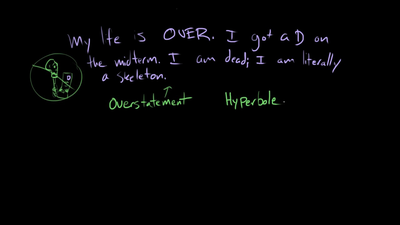 My lfe is OVER. I got a D on
the midterm. I am dead; I am literally
a skeleton.
Overstatement Hyperbole.